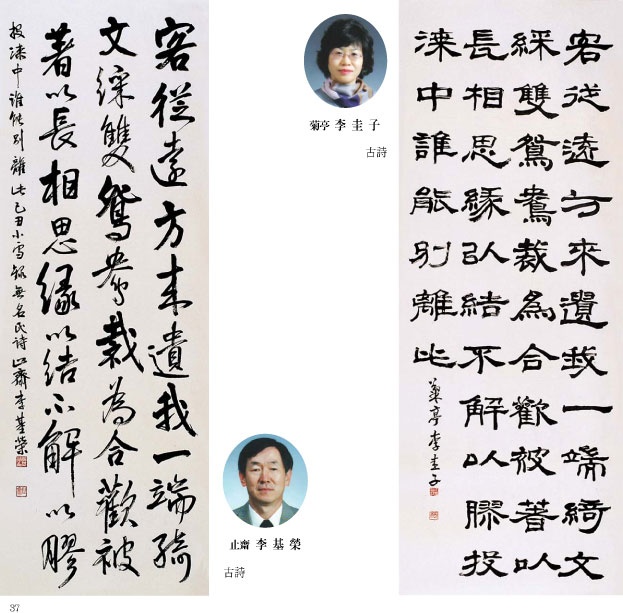 客從遠方來遺我一端綺
文綵雙鴛鴦裁為合歡被
著以長相思緣以結不解以膠
投漆中誰能別離此 己丑小雪錄無名氏詩 止齋李基榮
菊亭 李圭子
古詩
止齋 李基榮
古詩
客從遠方來遺我一端綺文
綵雙鴛鴦裁為合歡被著以
長相思緣以結不解以膠投
漆中誰能別離此
菊亭李圭子
37